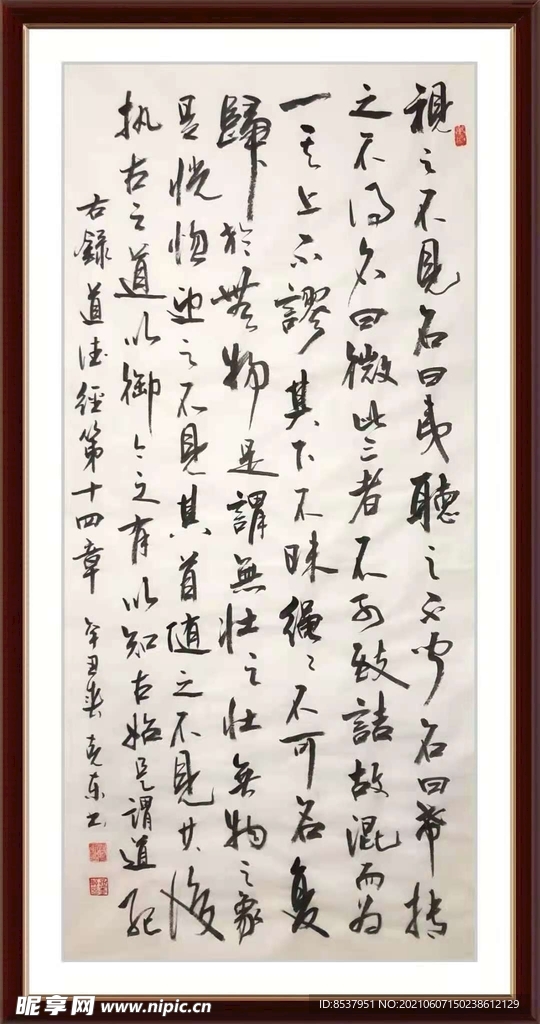 視之不見名曰夷聽之不聞名曰希摶
之不得名曰微此三者不可致詰故混而為
一其上不謬其下不昧繩〻不可名复
歸於無物是謂無壯之壯無物之象
是恍惚迎之不見其首随之不見其後
执古之道以御今之有以知古始是謂道紀
右録道德經第十四章 辛丑癸克东书
昵享网 www.nipic.cn
ID:8537951 NO:20210607150238612129